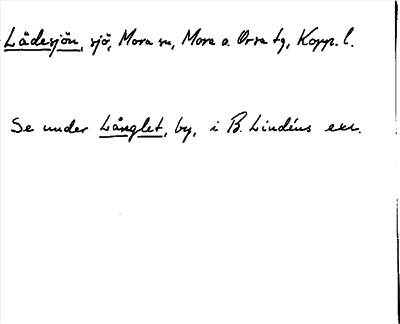 Lädesjön, sjö, Mora sn, Mora o. Orsa tg, Kopp. l.
Se under Långlet, by, i B. Lindéns exc.